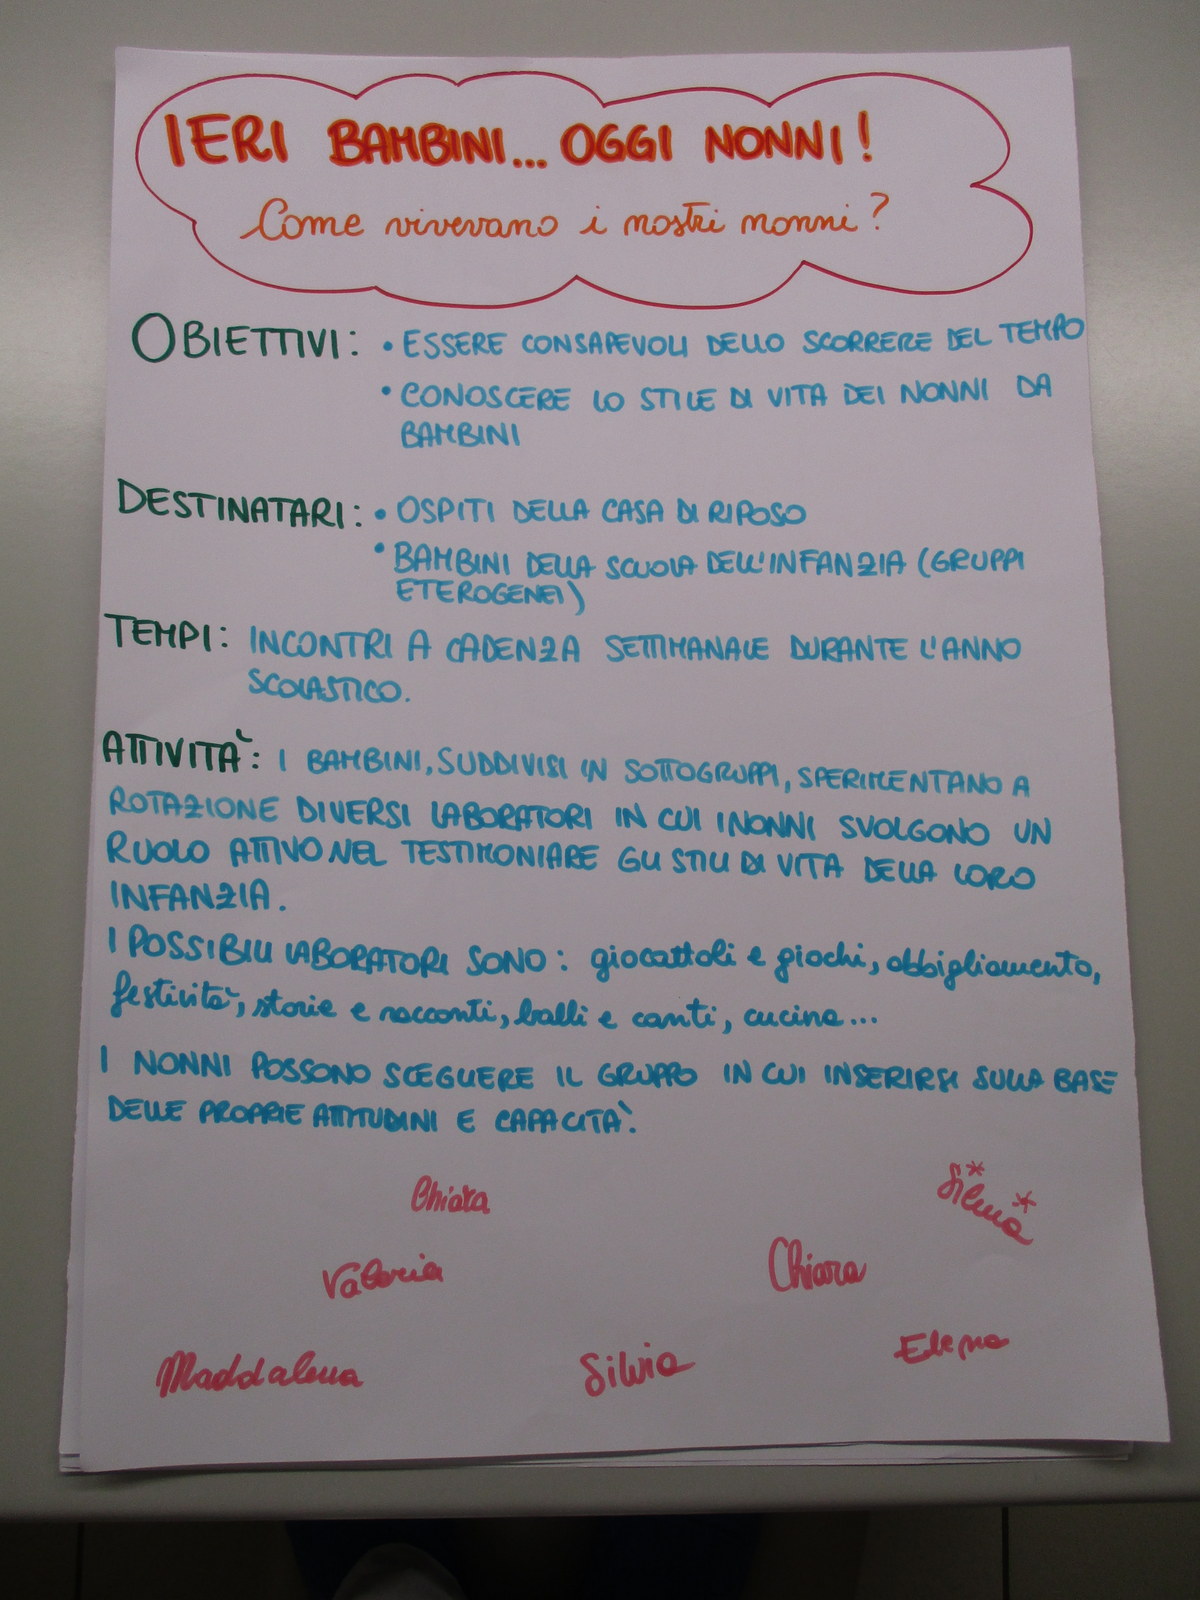 IERI BAMBINI... OGGI NONNI!
Come vivevano i nostri nonni?
OBIETTIVI: • ESSERE CONSAPEVOLI DELLO SCORRERE DEL TEMPO
• CONOSCERE LO STILE DI VITA DEI NONNI DA
BAMBINI
DESTINATARI: • OSPITI DELLA CASA DI RIPOSO
• BAMBINI DELLA SCUOLA DELL'INFANZIA (GRUPPI
ETEROGENEI)
TEMPI: INCONTRI A CADENZA SETTIMANALE DURANTE L'ANNO
SCOLASTICO.
ATTIVITÀ: I BAMBINI, SUDDIVISI IN SOTTOGRUPPI, SPERIMENTANO A
ROTAZIONE DIVERSI LABORATORI IN CUI I NONNI SVOLGONO UN
RUOLO ATTIVO NEL TESTIMONIARE GLI STILI DI VITA DELLA LORO
INFANZIA.
I POSSIBILI LABORATORI SONO: giocattoli e giochi, abbigliamento,
festività, storie e racconti, balli e canti, cucina...
I NONNI POSSONO SCEGLIERE IL GRUPPO IN CUI INSERIRSI SULLA BASE
DELLE PROPRIE ATTITUDINI E CAPACITÀ.
Chiara
Silvia
Valeria
Chiara
Maddalena
Silvia
Elena